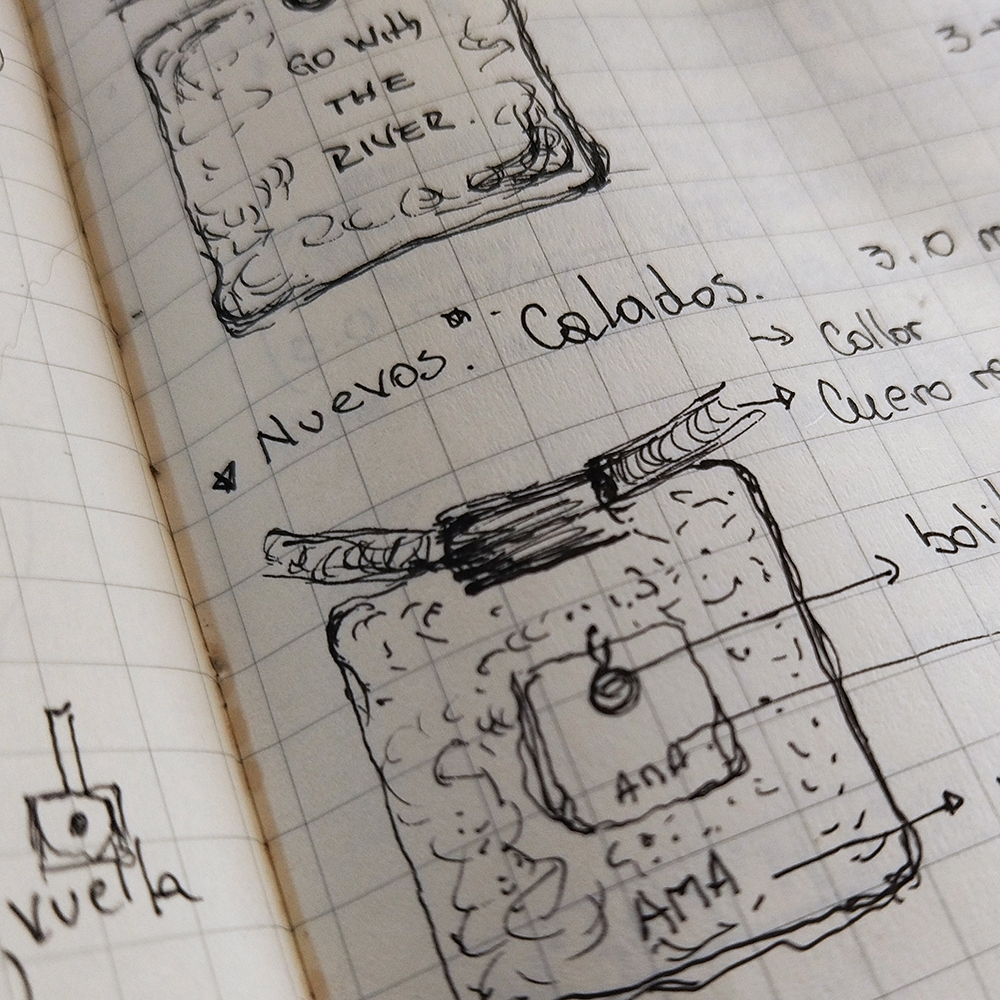 GO With
THE
RIVER.
3.0
Nuevos. Calados.
→ Collar
Cuero
AMA
AMA
vuelta